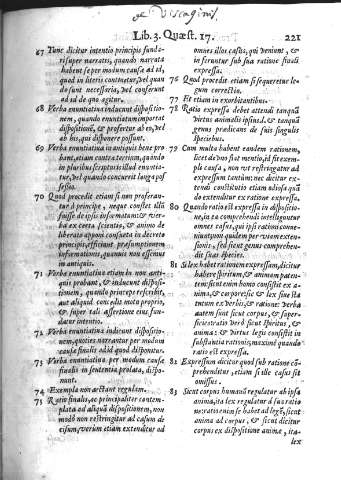 de Viscaginis
Lib. 3. Quæst. 17.
221
67 Tunc dicitur intentio principis fundari super narratis, quando narrata
habent se per modum causæ ad id,
quod in literis continetur, vel quando
sunt necessaria, vel conferunt
ad id de quo agitur.
68 Verba enuntiativa inducunt dispositionem,
quando enuntiatum importat
dispositionẽ, & profertur ab eo, vel
ab his, qui disponere possunt.
69 Verba enuntiativa in antiquis bene probant,
etiam contra tertium, quando
in pluribus scripturis illud enuntiatur,
vel quando concurrit longa possessio.
70 Quod procedit etiam si eam proferantur
à principe, neque constet alii
fuisse de ipsis informatum: & verba
ex certa scientia, & animo de
liberato apponi consueta in decreto
principis, efficiunt præsumptionem
informationis, quamvis non essemus
in antiquis.
71 Verba enuntiativa etiam in non antiquis
probant, & inducunt dispositionem,
quando princeps rescribit,
aut aliquid concedit motu proprio,
& super tali assertione eius fundatur
intentio.
72 Verba enuntiativa inducunt dispositionem,
quoties narrantur per modum
causæ finalis ad id quod disponitur.
73 Verba enuntiativa per modum causæ
finalis in sententia prolata, disponunt.
74 Exempla non arctant regulam.
75 Ratio finalis, ac principaliter contemplata
ad aliquã dispositionem, non
modò non restringitur ad casum decisum,
verum etiam extenditur ad
omnes illos casus, qui veniunt, &
inferuntur sub sua ratione finali
expressa.
76 Quod procedit etiam si sequeretur legum
correctio.
77 Et etiam in exorbitantibus.
78 Ratio expressa debet attendi tanquã
virtus animalis ipsius l. & tanquã
genus prædicans de suis singulis
speciebus.
79 Cum multa habent eandem rationem,
licet de uno fiat mentio, id fit exempli
causa, non vt restringatur ad
expressum tantum: nec dicitur extendi
constitutio etiam odiosa quã
do extenditur ex ratione expressa.
80 Quando ratio est expressa in dispositione,
in ea comprehendi intelliguntur
omnes casus, qui ipsi rationi conveniunt
non quidem per viam extensionis,
sed sicut genus comprehendit
suas species.
81 Si lex habet rationem expressam, dicitur
habere spiritum, & animam patentem:
sicut enim homo consistit ex anima,
& corpore: sic & lex sine litatum
ex verbis, & ratione: verba
autem sunt sicut corpus, & superficies:
ratio verò sicut spiritus, &
anima: & virtus legis consistit in
substantia rationis maximè quando
ratio est expressa.
82 Expressum dicitur quod sub ratione cõprehenditur,
etiam si ille casus sit
omissus.
83 Sicut corpus humanũ regulatur ab ipsa
anima, ita lex regulatur à sua ratione:
ratio enim se habet ad legẽ, sicut
anima ad corpus, & sicut dicitur
corpus ex dispositione anima, ita
lex